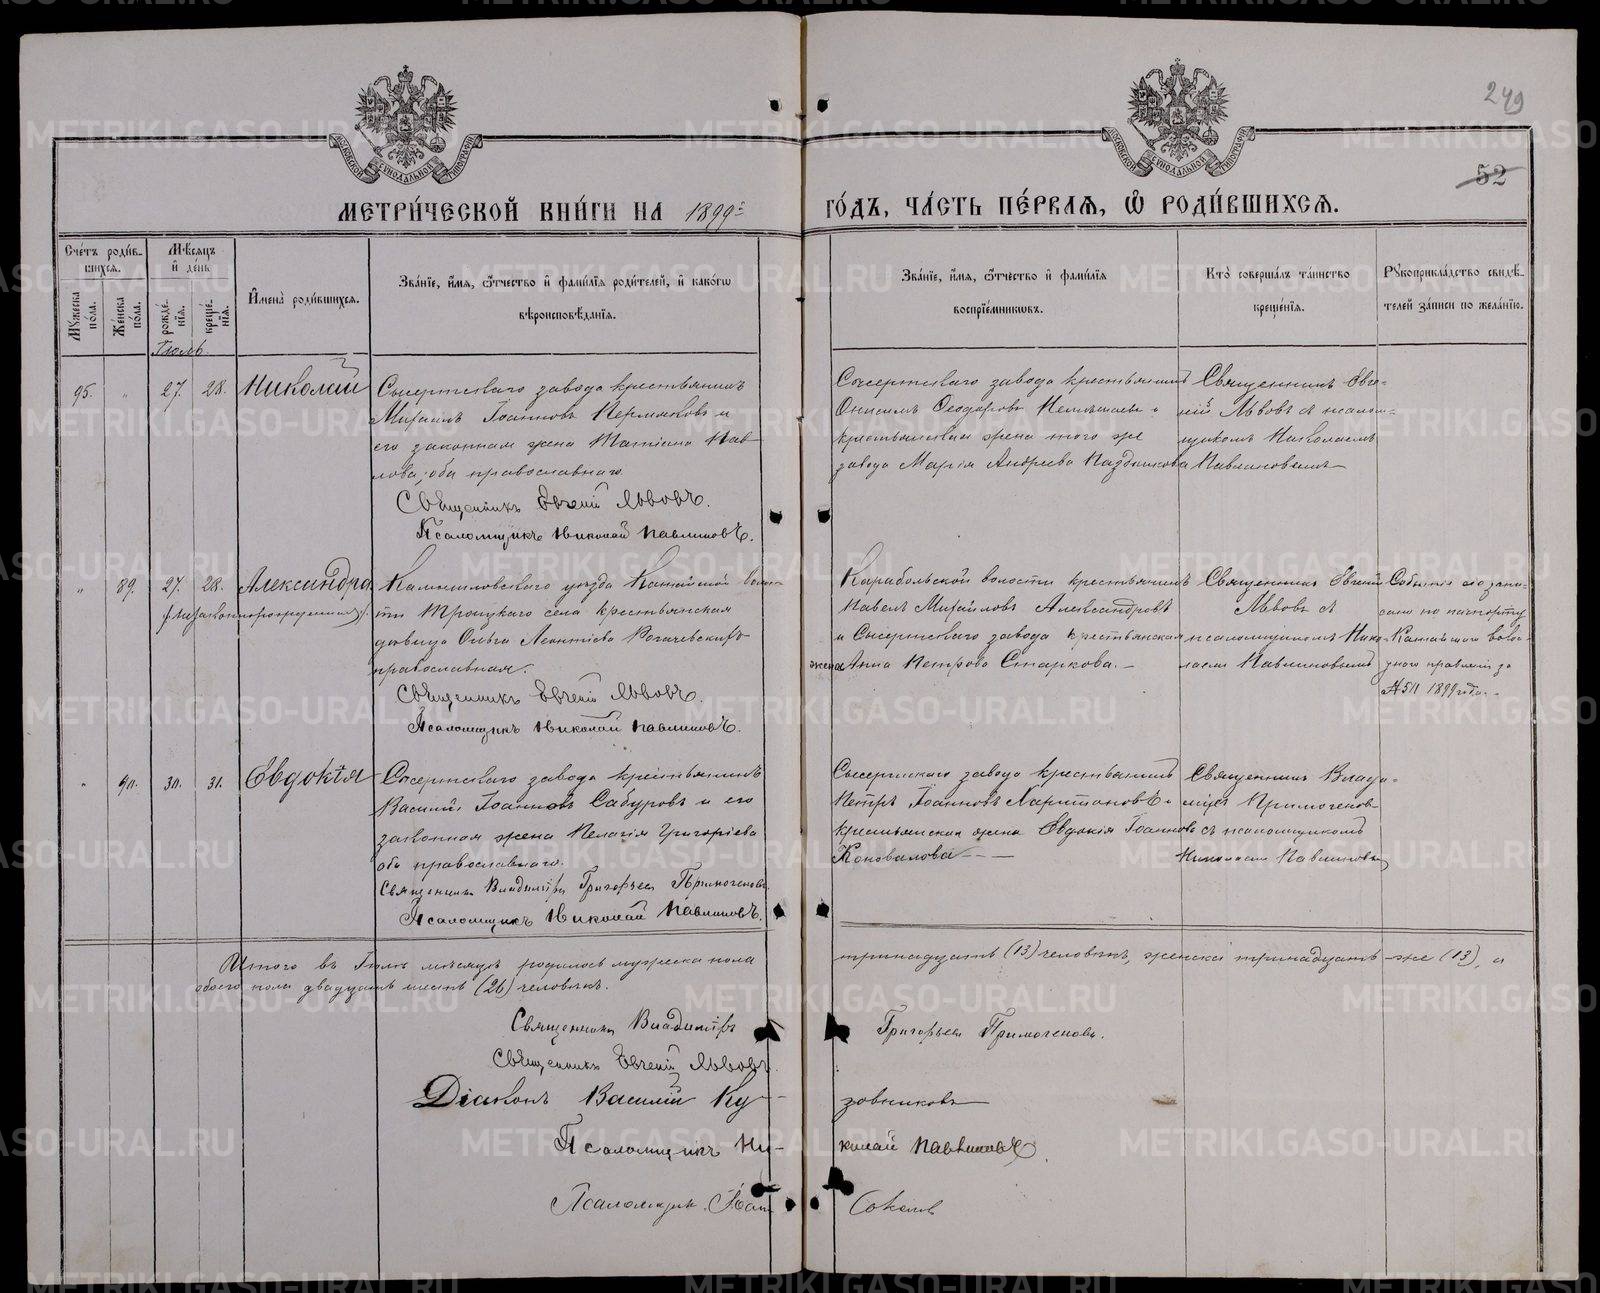 249
52
МОСКОВСКОЙ СѴНОДАЛЬНОЙ ТИПОГРАФІИ
МОСКОВСКОЙ СѴНОДАЛЬНОЙ ТИПОГРАФІИ
МЕТРИ́ЧЕСКОЙ КНИ́ГИ НА 1899й ГО́ДЪ, ЧА́СТЬ ПЕ́РВАѦ, Ѡ РОДИ́ВШИХСѦ.
Сче́тъ роди́в-
шихсѧ.
Мꙋ́жеска по́ла.
Же́нска по́ла.
Мѣ́сѧцъ и҆ де́нь
рожде́нїѧ.
креще́нїѧ.
И҆мена̀ роди́вшихсѧ.
Зва́нїе, и҆́мѧ, ѻ҆́тчество и҆ фами́лїѧ роди́телей, и҆ како́гѡ
вѣроисповѣ́данїѧ.
Зва́нїе, и҆́мѧ, ѻ҆́тчество и҆ фами́лїѧ
воспрїе́мникѡвъ.
Кто̀ соверша́лъ та́инство
креще́нїѧ.
Рꙋкоприкла́дство свидѣ́-
телей за́писи по жела́нїю.
Іюль.
95. " 27. 28. Николай
Сысертскаго завода крестьянинъ
Михаилъ Іоанновъ Пермяковъ и
его законная жена Татіана Пав-
лова, оба православнаго.
Священникъ Евгений Львовъ.
Псаломщикъ Николай Павлиновъ.
Сысертскаго завода крестьянинъ
Онисимъ Ѳеодоровъ и
крестьянская жена того же
завода Марія Андреева Паздникова
Священникъ Евге-
ній Львовъ съ псалом-
щикомъ Николаемъ
Павлиновымъ
" 89. 27. 28. Александра
(незаконнорожденная).
Камышловскаго уѣзда Волос-
ти Троицкаго села крестьянская
дѣвица Ольга Леонтіева
православная.
Священникъ Евгений Львовъ.
Псаломщикъ Николай Павлиновъ.
волости крестьянинъ
Павелъ Михайловъ Александровъ
и Сысертскаго завода крестьянская
жена Анна Петрова Старкова.
Священникъ Евгеній
Львовъ съ
псаломщикомъ Нико-
лаемъ Павлиновымъ
Событіе сіе запи-
сано по паспорту
волос-
наго правленія за
№ 511 1899 года.
" 90. 30. 31. Евдокія
Сысертскаго завода крестьянинъ
Василій Іоанновъ Сабуровъ и его
законная жена Пелагія Григоріева
оба православнаго.
Священникъ Владиміръ Григорьевъ Примогеновъ.
Псаломщикъ Николай Павлиновъ.
Сысертскаго завода крестьянинъ
Петръ Іоанновъ Харитоновъ и
крестьянская жена Евдокія Іоаннова
Коновалова
Священникъ Влади-
міръ Примогеновъ
съ псаломщикомъ
Николаемъ Павлиновымъ
Итого въ Іюлѣ мѣсяцѣ родилось мужеска пола тринадцать (13) человѣкъ, женска тринадцать же (13), а
обоего пола двадцать шесть (26) человѣкъ.
Священникъ Владиміръ Григорьевъ Примогеновъ.
Священникъ Евгений Львовъ.
Діаконъ Василій Кузовниковъ
Псаломщикъ Николай Павлиновъ.
Псаломщикъ Соколовъ
METRIKI.GASO-URAL.RU